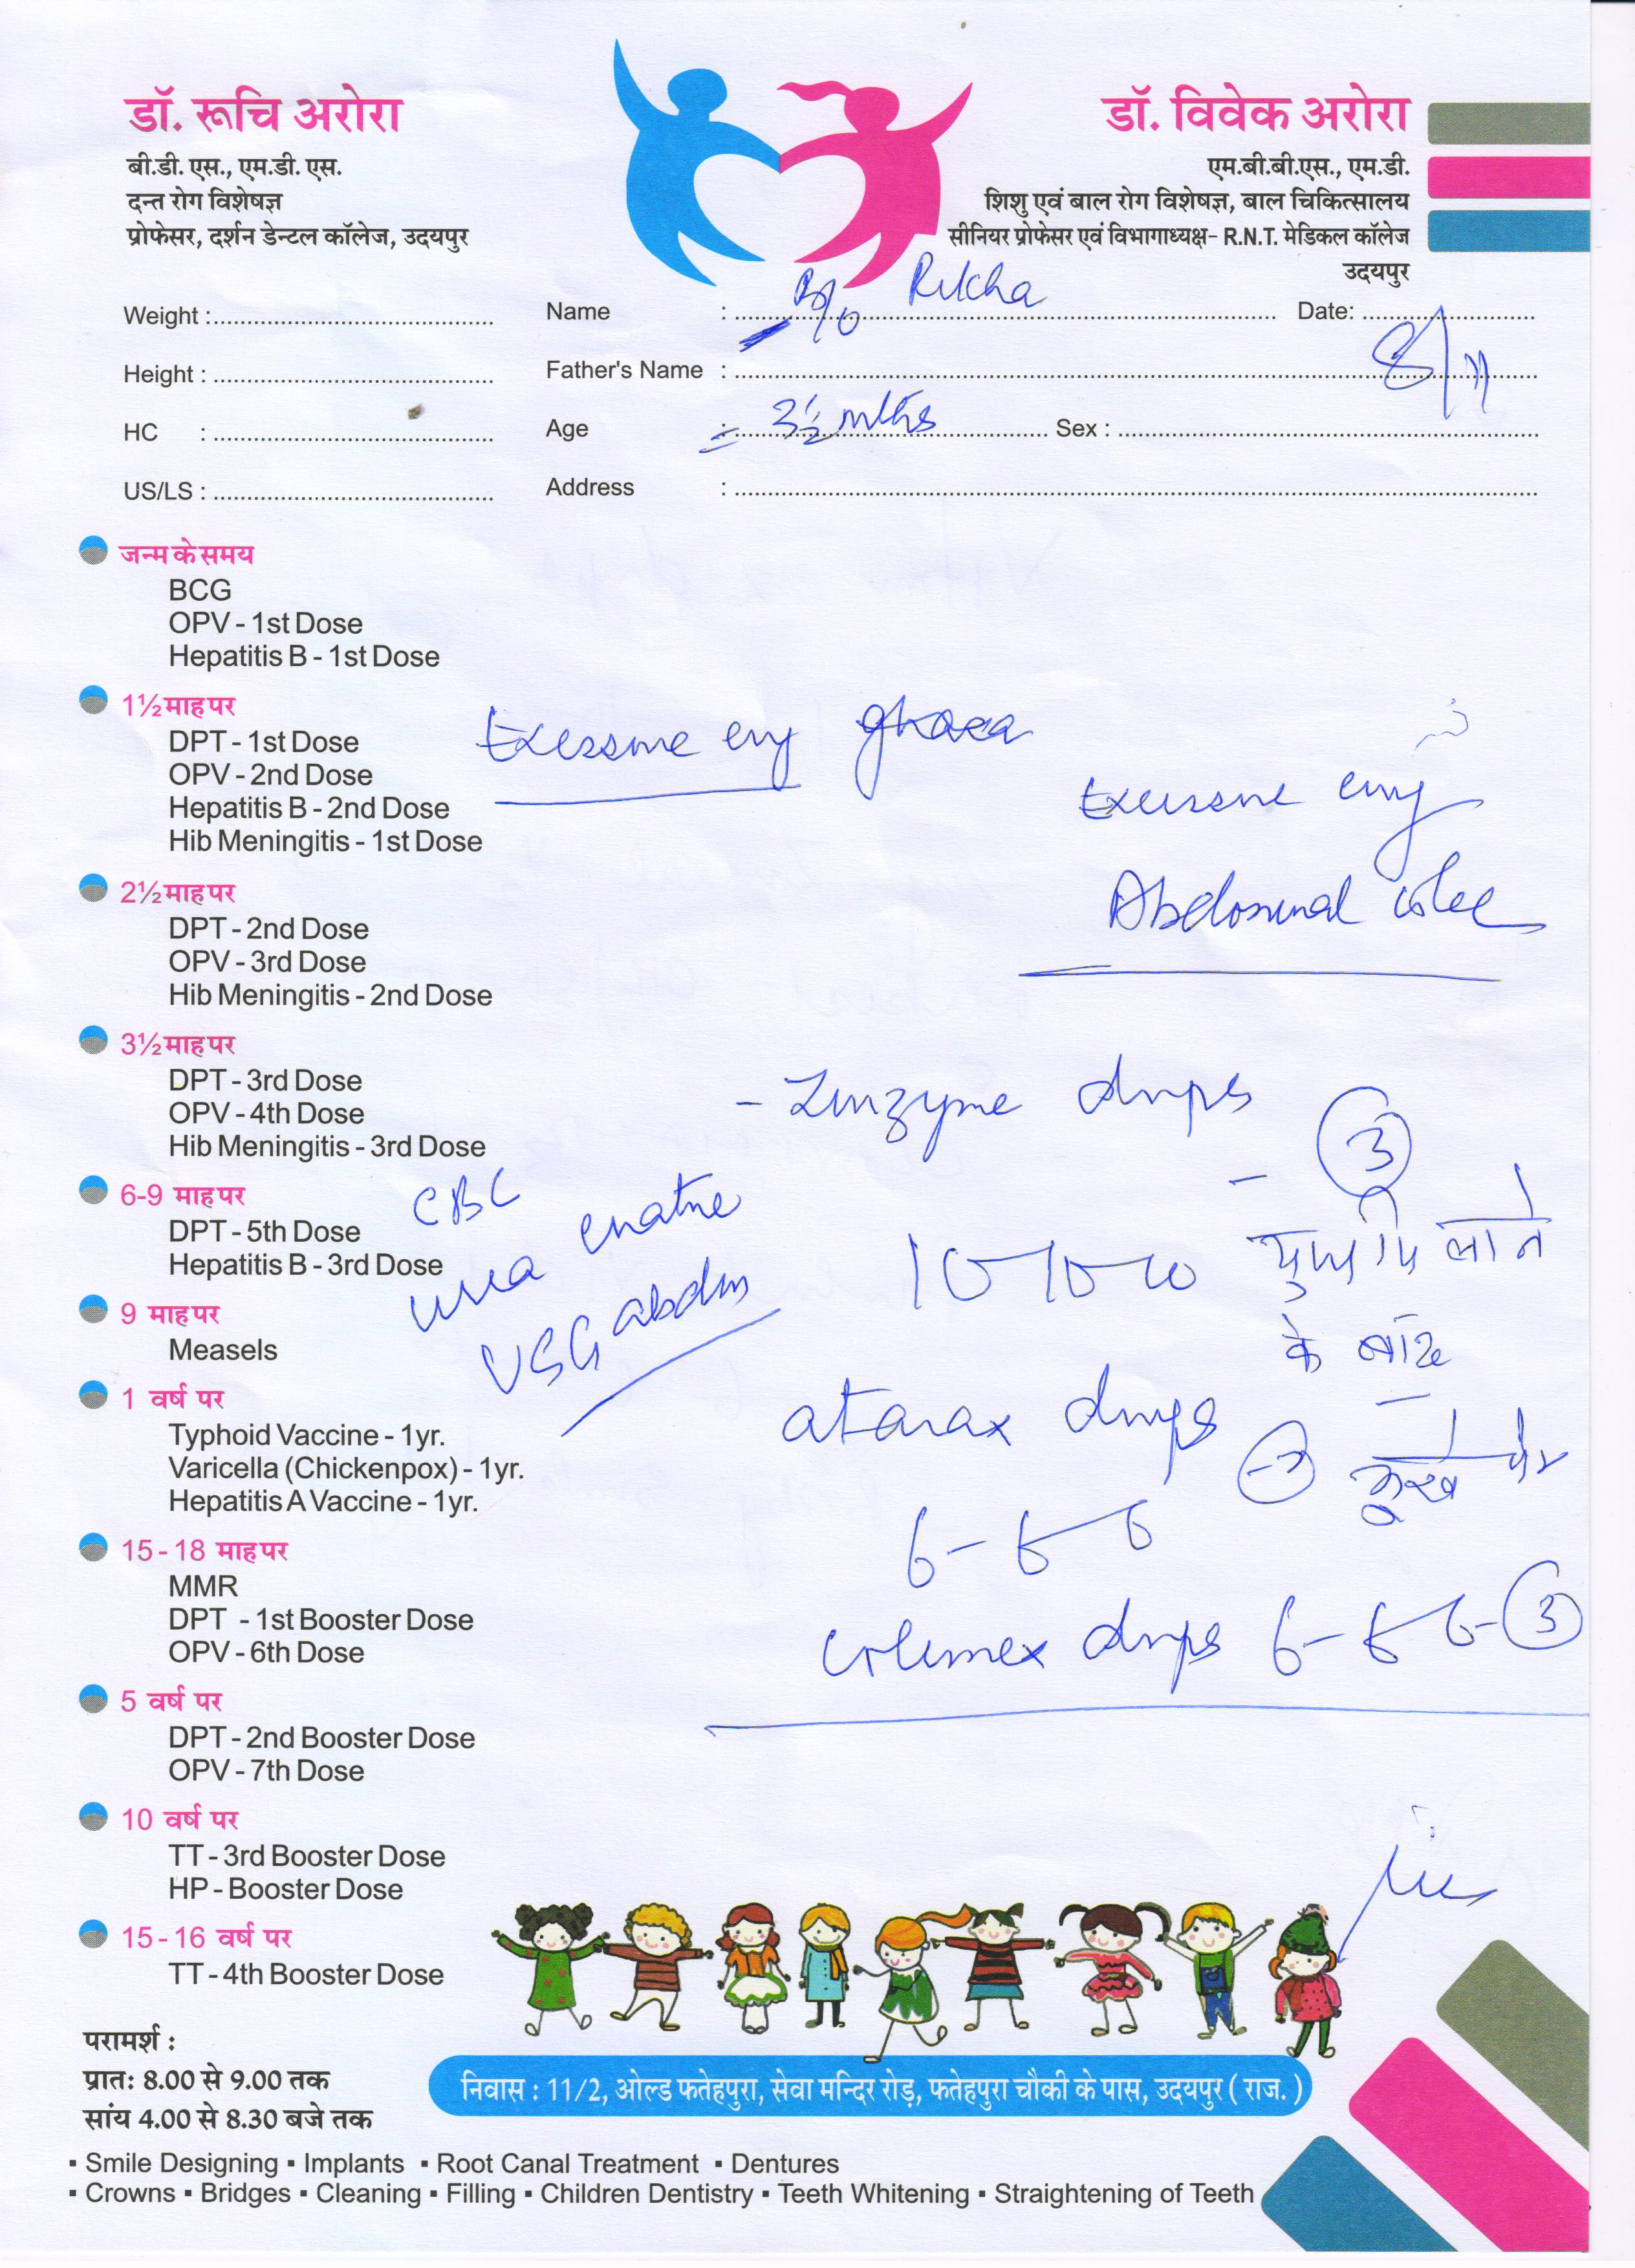 डॉ. रूचि अरोरा
बी.डी. एस., एम.डी. एस.
दन्त रोग विशेषज्ञ
प्रोफेसर, दर्शन डेन्टल कॉलेज, उदयपुर
डॉ. विवेक अरोरा
एम.बी.बी.एस., एम.डी.
शिशु एवं बाल रोग विशेषज्ञ, बाल चिकित्सालय
सीनियर प्रोफेसर एवं विभागाध्यक्ष- R.N.T. मेडिकल कॉलेज
उदयपुर
Weight :
Height :
HC :
US/LS :
Name : B/o
Date: 8/11
Father's Name :
Age : 3½ mths Sex :
Address :
जन्म के समय
BCG
OPV - 1st Dose
Hepatitis B - 1st Dose
1½ माह पर
DPT - 1st Dose
OPV - 2nd Dose
Hepatitis B - 2nd Dose
Hib Meningitis - 1st Dose
2½ माह पर
DPT - 2nd Dose
OPV - 3rd Dose
Hib Meningitis - 2nd Dose
3½ माह पर
DPT - 3rd Dose
OPV - 4th Dose
Hib Meningitis - 3rd Dose
6-9 माह पर
DPT - 5th Dose
Hepatitis B - 3rd Dose
9 माह पर
Measels
1 वर्ष पर
Typhoid Vaccine - 1yr.
Varicella (Chickenpox) - 1yr.
Hepatitis A Vaccine - 1yr.
15 - 18 माह पर
MMR
DPT - 1st Booster Dose
OPV - 6th Dose
5 वर्ष पर
DPT - 2nd Booster Dose
OPV - 7th Dose
10 वर्ष पर
TT - 3rd Booster Dose
HP - Booster Dose
15 - 16 वर्ष पर
TT - 4th Booster Dose
Abdominal colic
drops
3
CBC
USG abdm
10-10-10
पिलाने
के बाद
atarax drops
6-6-6
colimex drops 6-6-6-3
परामर्श :
प्रातः 8.00 से 9.00 तक
सांय 4.00 से 8.30 बजे तक
निवास : 11/2, ओल्ड फतेहपुरा, सेवा मन्दिर रोड़, फतेहपुरा चौकी के पास, उदयपुर ( राज. )
▪ Smile Designing ▪ Implants ▪ Root Canal Treatment ▪ Dentures
▪ Crowns ▪ Bridges ▪ Cleaning ▪ Filling ▪ Children Dentistry ▪ Teeth Whitening ▪ Straightening of Teeth